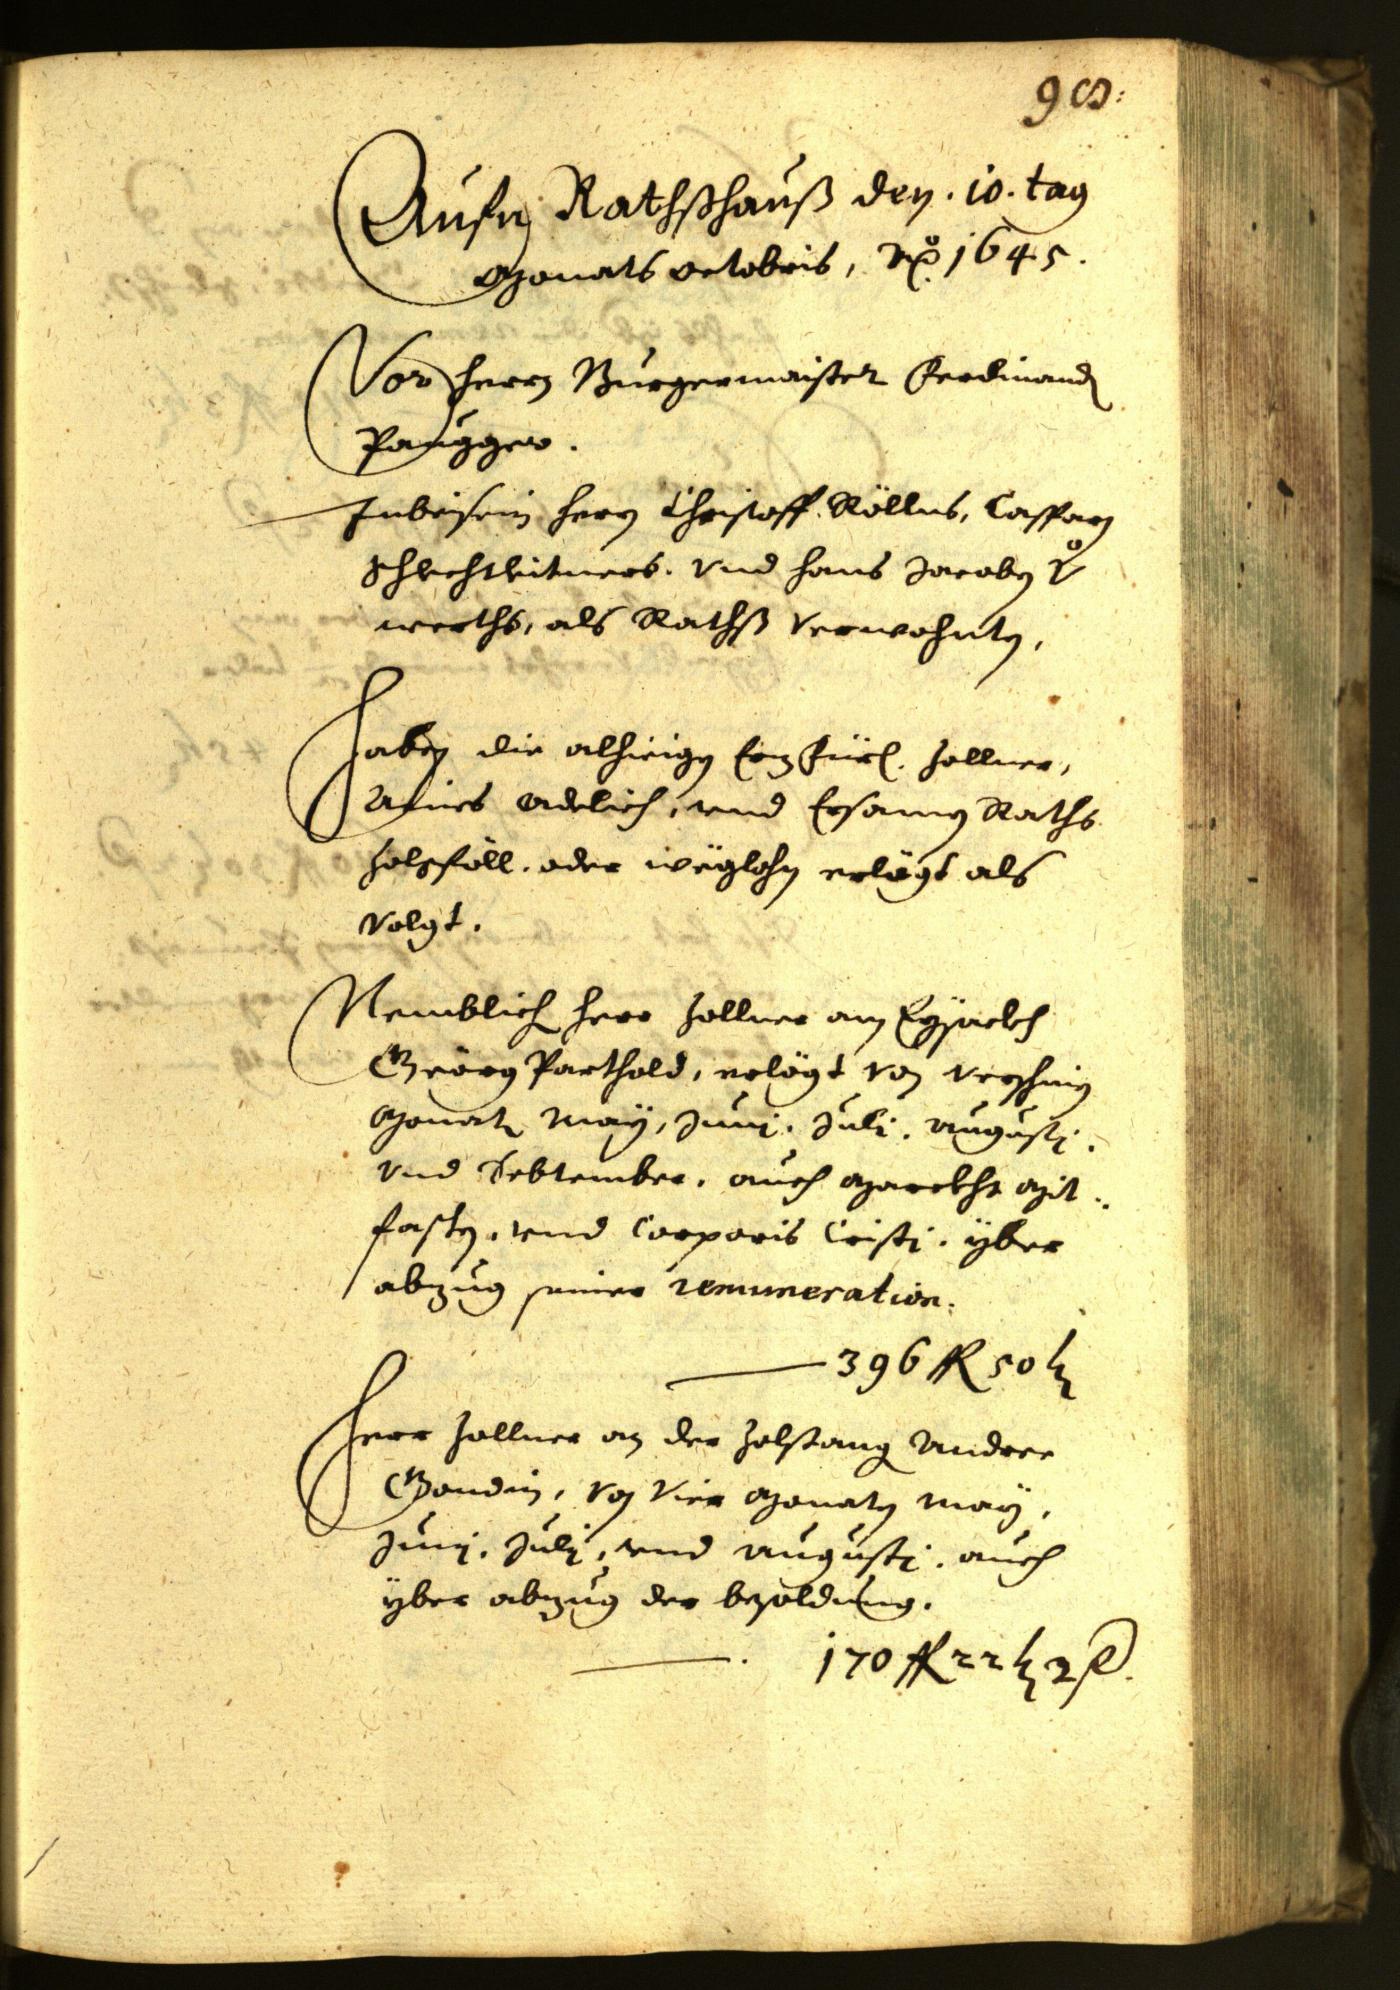 98:
Aufn Rathßhauß den .10. tag
Monats octobris, Ao 1645.
Vor herrn Burgermaister Ferdinand
Paugger.
Inbeisein herrn Christoff Röllns, Caspar
Schlechtleitners. Vnd hans Jacoben
werths, als Rathß Verwohnte,
Haben die alhieigen Erz Fürl. Zollner,
Aines Adelich, vnd Ersamen Raths
Zolgföll. oder wëglohn erlögt als
Volgt.
Nemblich herr Zollner am Eysackh
Geörg Parthold, erlögt von verschinen
Monath May, Junj. Julj. augustj.
vnd Sebtember. auch Marckht Mit:
fasten. vnd Corporis Cristj. yber
abzug seiner remuneration.
396 fl 50 kr
Herr Zollner an der Zolstang Andree
Gondin, von vier Monaten May,
Junj. Julj, vnd augustj. auch
yber abzug der besoldung.
170 fl 22 kr 2 ₰.